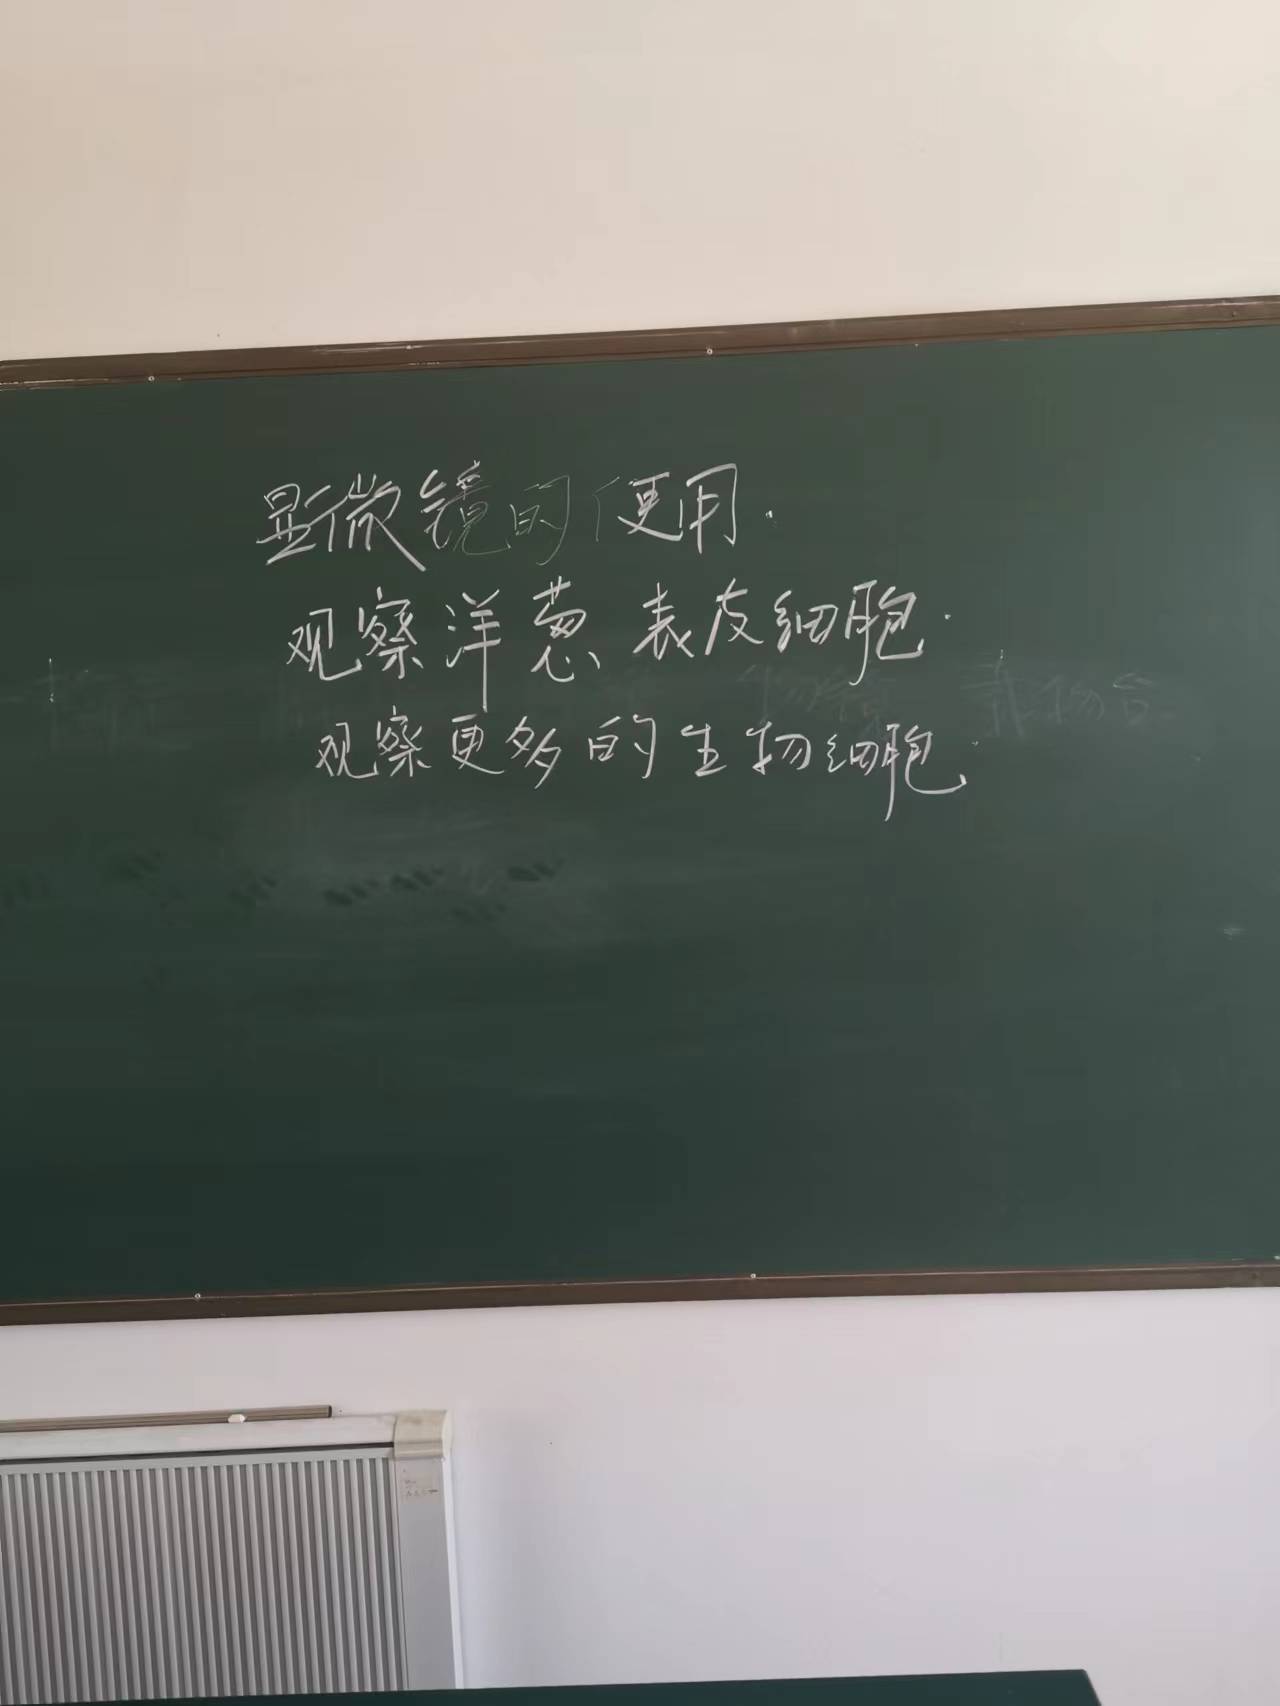 显微镜的使用.
观察洋葱表皮细胞.
观察更多的生物细胞.
物镜 载物台